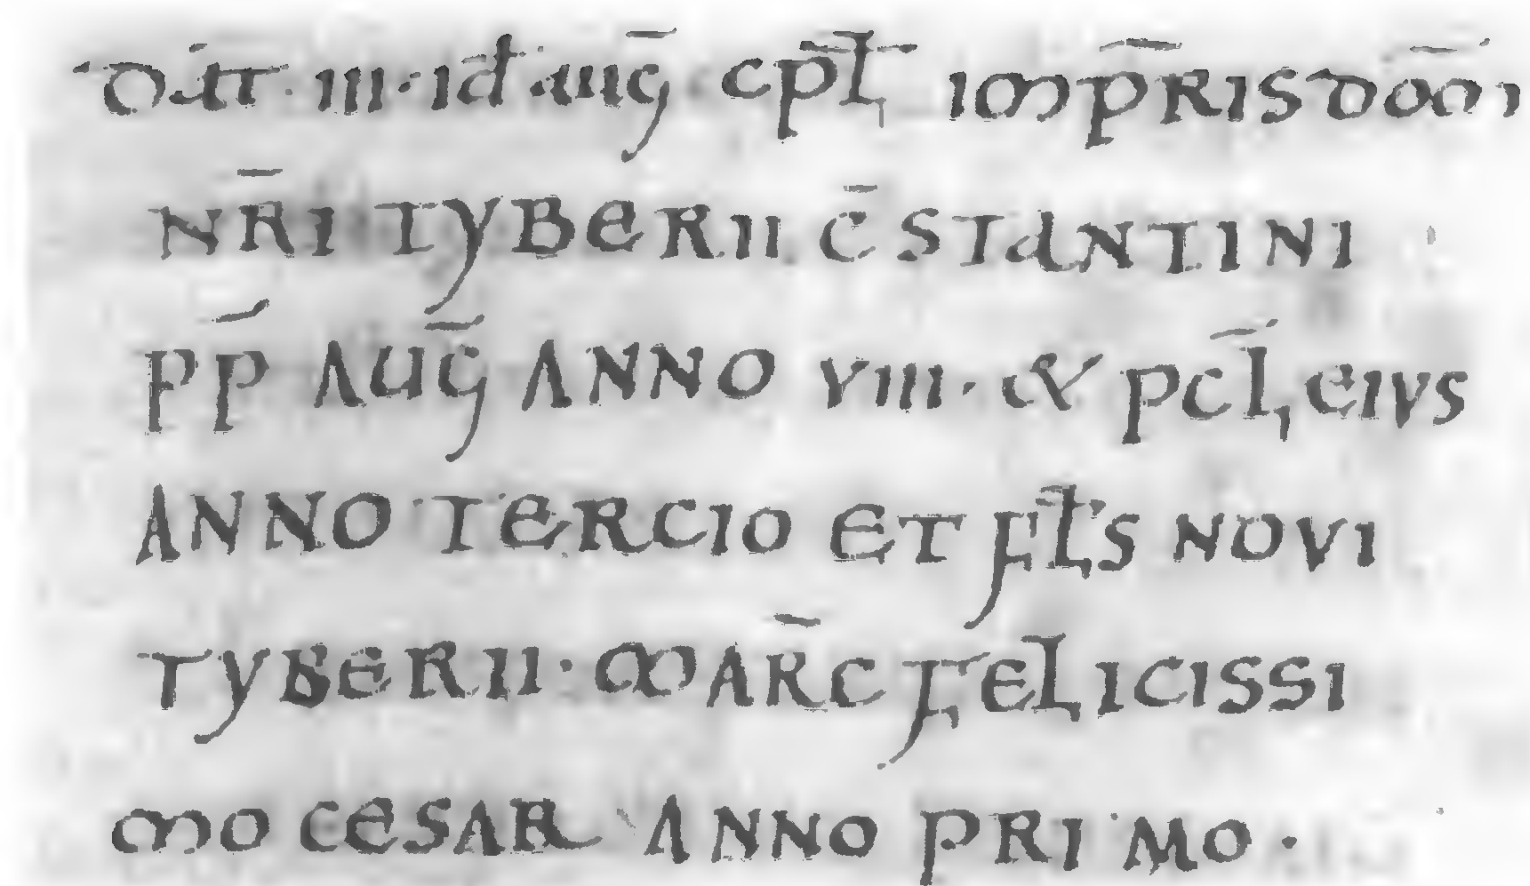 DAT · III · ID AUG̅ CPL̅ IMP̅RIS DOM̅I
NR̅I TYBERII C̅STANTINI
PP̅ AUG̅ ANNO VIII · & PCL̅ EIVS
ANNO TERCIO ET FL̅S NOVI
TYBERII · MAR̅C FELICISSI
MO CESAR ANNO PRIMO ·